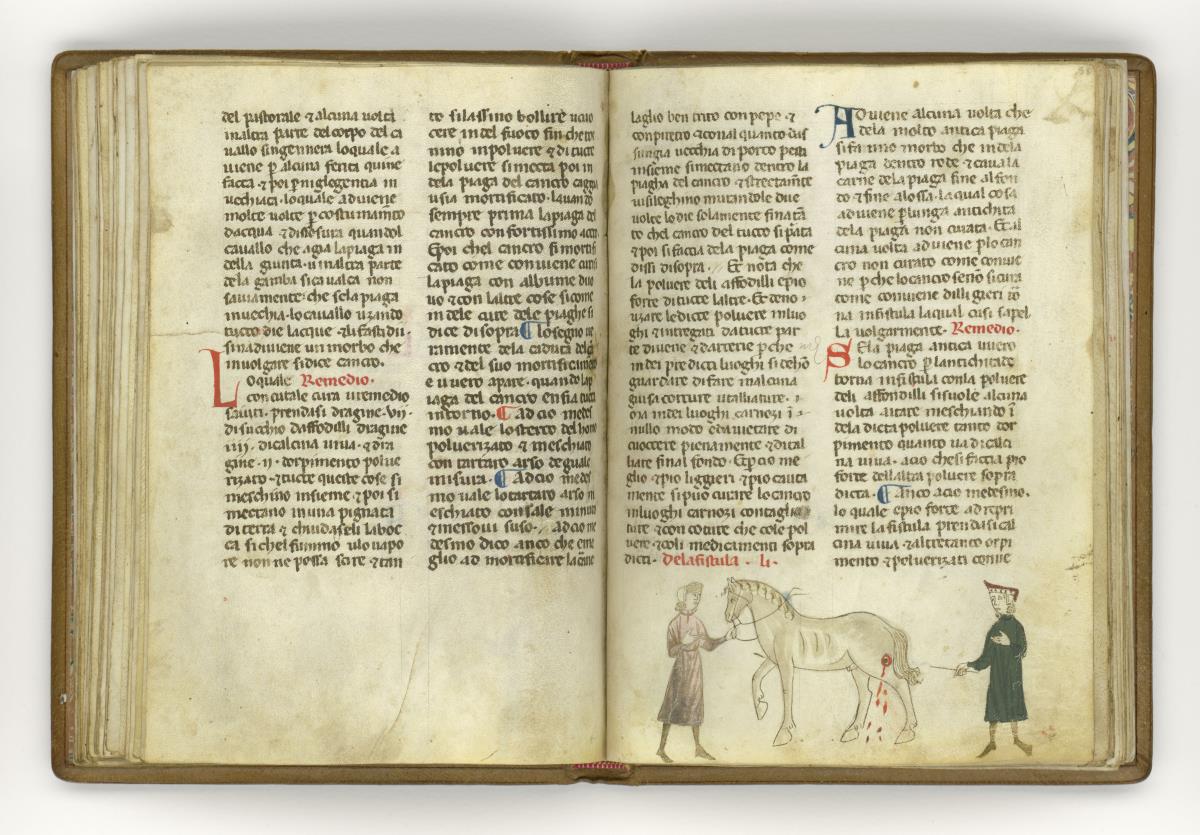 del pastorale ⁊ alcuna volta
in altra parte del corpo del ca
uallo singennera loquale a
uiene p alcuna ferita quiue
facta ⁊ poi p niglegentia in
uechiata · loquale adiuene
molte volte p costumaměto
dacqua ⁊ disosura quando l
cauallo che agia lapiaga in
della giunta · u inaltra parte
dela gamba sicaualca non
sauiamente · che sela piaga
inuechia · lo cauallo uzando
tucto die lacque
sinadiuene un morbo che
in uolgare si dice cancro .
Loquale Remedio .
con cutale cura uremedio
prendasi dragine · vii ·
di succhio daffodilli dragine
iiii · di calcina uiua · ⁊ dra
gine · ii · dorpimento polue
rizato · ⁊ tucte queste cose si
meschino insieme ⁊ poi si
mectano in una pignata
di terra ⁊ chiudaseli laboc
ca si chel fummo ulo uapo
re non ne possa scire ⁊ tan
to si lassino bollire
cere in del fuoco fin che
nino in poluere ⁊ di tucte
le poluere si mecta poi in
dela piaga del cancro
u sia mortificato · lauando
sempre prima lapiaga del
cancro con fortissimo
Epoi chel cancro si mortifi
cato come conuiene
lapiaga con albume duo
uo ⁊ con laltre cose si come
in dele cure dele piaghe si
dice di sopra Losegno ue
ramente dela caduta del
cro ⁊ del suo mortificame
e uuero apare · quando la p
iaga del cancro enfia tucta
intorno · Ad cio medes
mo uale lo sterco del homo
poluerizato ⁊ meschiato
con tartaro arso de guale
misura · Ad cio medes
mo uale lo tartaro arso
eschiato con sale minuto
⁊ messoui suso · Ad cio me
desmo dico anco che e me
glio ad mortificare la carne
laglio ben trito con pepe · ⁊
con piretro ⁊ con al quanto das
sungia uecchia di porco pesti
insieme si mectano dentro la
piagha del cancro · ⁊ strectamte
ui si leghino mutandole due
volte lo die solamente fina tã
to che cancro del tucto si pata
⁊ poi si faccia dela piaga come
dissi di sopra . Et nota che
la poluere deli affodilli e pio
forte di tucte laltre · Et deno
uzare le dicte poluere in luo
ghi intrigati da tucte par
te di uene ⁊ darterie p che
in dei predicti luoghi si deno
guardare di fare in alcuna
guisa cocture u tagliature ·
ona in dei luoghi carnozi i
nullo modo e da uietare di
cuocere pienamente ⁊ di tal
liare final fondo · Et p cio me
glio ⁊ pio liggieri ⁊ pio cauta
mente si puo curare lo cancro
in luoghi carnozi con taglia
ture ⁊ con coture che cole pol
uere ⁊ coli medicamenti sopra
dicti · dela fistula · li ·
Aduiene alcuna volta che
dela molto antica piaga
si fa uno morbo che in dela
piaga dentro rode ⁊ caua la
carne dela piaga fine al fon
do ⁊ fine a lossa · la qual cosa
aduiene p lunga antichita
dela piaga non curata · Et al
cuna volta aduiene p lo can
cro non curato come conuie
ne p che lo cancro senõ si cura
come conuiene di lliggieri tõ
na in fistula la qual cusi sapel
la uolgarmente · Remedio ·
Se la piaga antica uuero
lo cancro p lantichitade
torna in fistula con la poluere
deli affondilli si suole alcuna
volta aitare meschiando i
dela dicta poluere tanto dor
pimento quanto ua di calci
na uiua · acio che si faccia pio
forte dell altra poluere sopra
dicta · Anco acio medesmo ·
lo quale e pio forte ad repri
mire la fistula prendasi cal
cina uiua · ⁊ altretanto orpi
mento ⁊ poluerizati conue